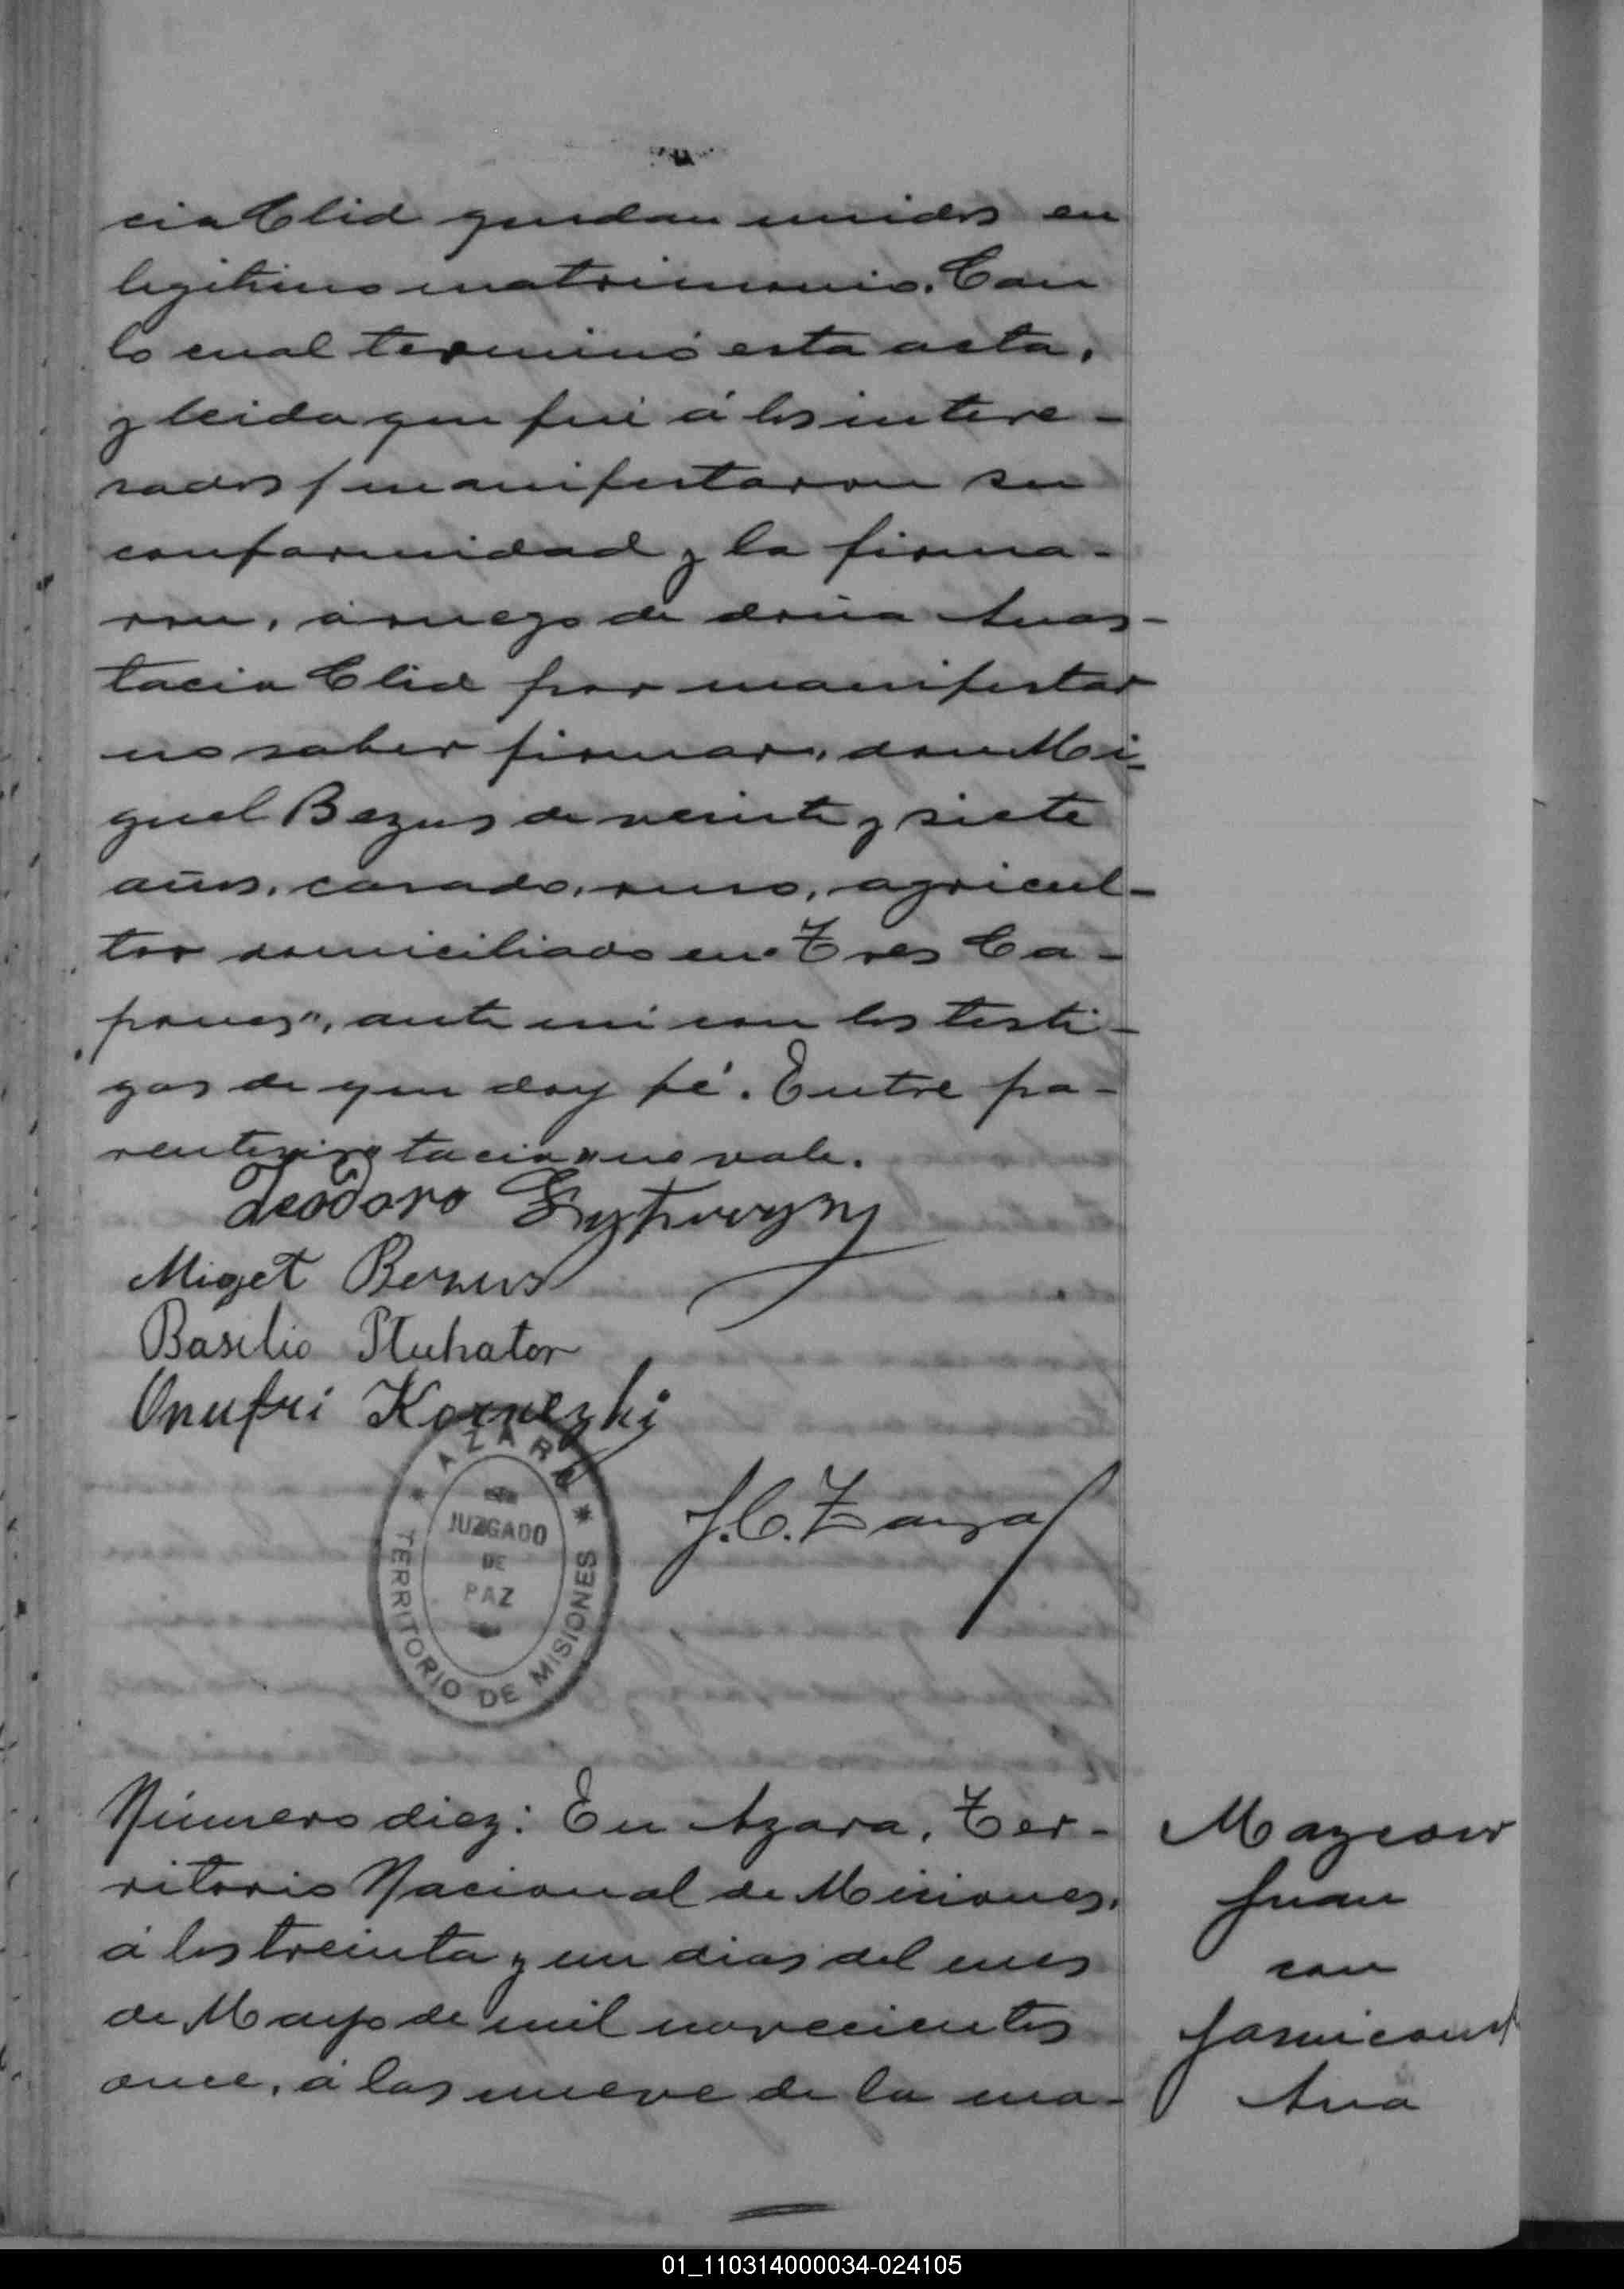 cia Clid quedan unidos en
legitimo matrimonio. Con
lo cual terminó esta acta,
y leida que fué á los intere-
sados / manifestaron su
conformidad y la firma-
ron, á ruego de doña Anas-
tacia Clid por manifestar
no saber firmar, don Mi-
guel Bezus de veinte y siete
años, casado, ruso, agricul-
tor domiciliado en "Tres Ca-
pones", ante mi con los testi-
gos de que doy fé. Entre pa-
rentesis tacia no vale.
Teodoro
Miget Bezus
Basilio Pluhator
Onufri Kornezki
J. C. Zanza
* AZARA *
JUZGADO
DE
PAZ
TERRITORIO DE MISIONES
Número diez: En Azara, Ter-
ritorio Nacional de Misiones,
á los treinta y un dias del mes
de Mayo de mil novecientos
once, á las nueve de la ma-
Mazcow
Juan
con
Ana